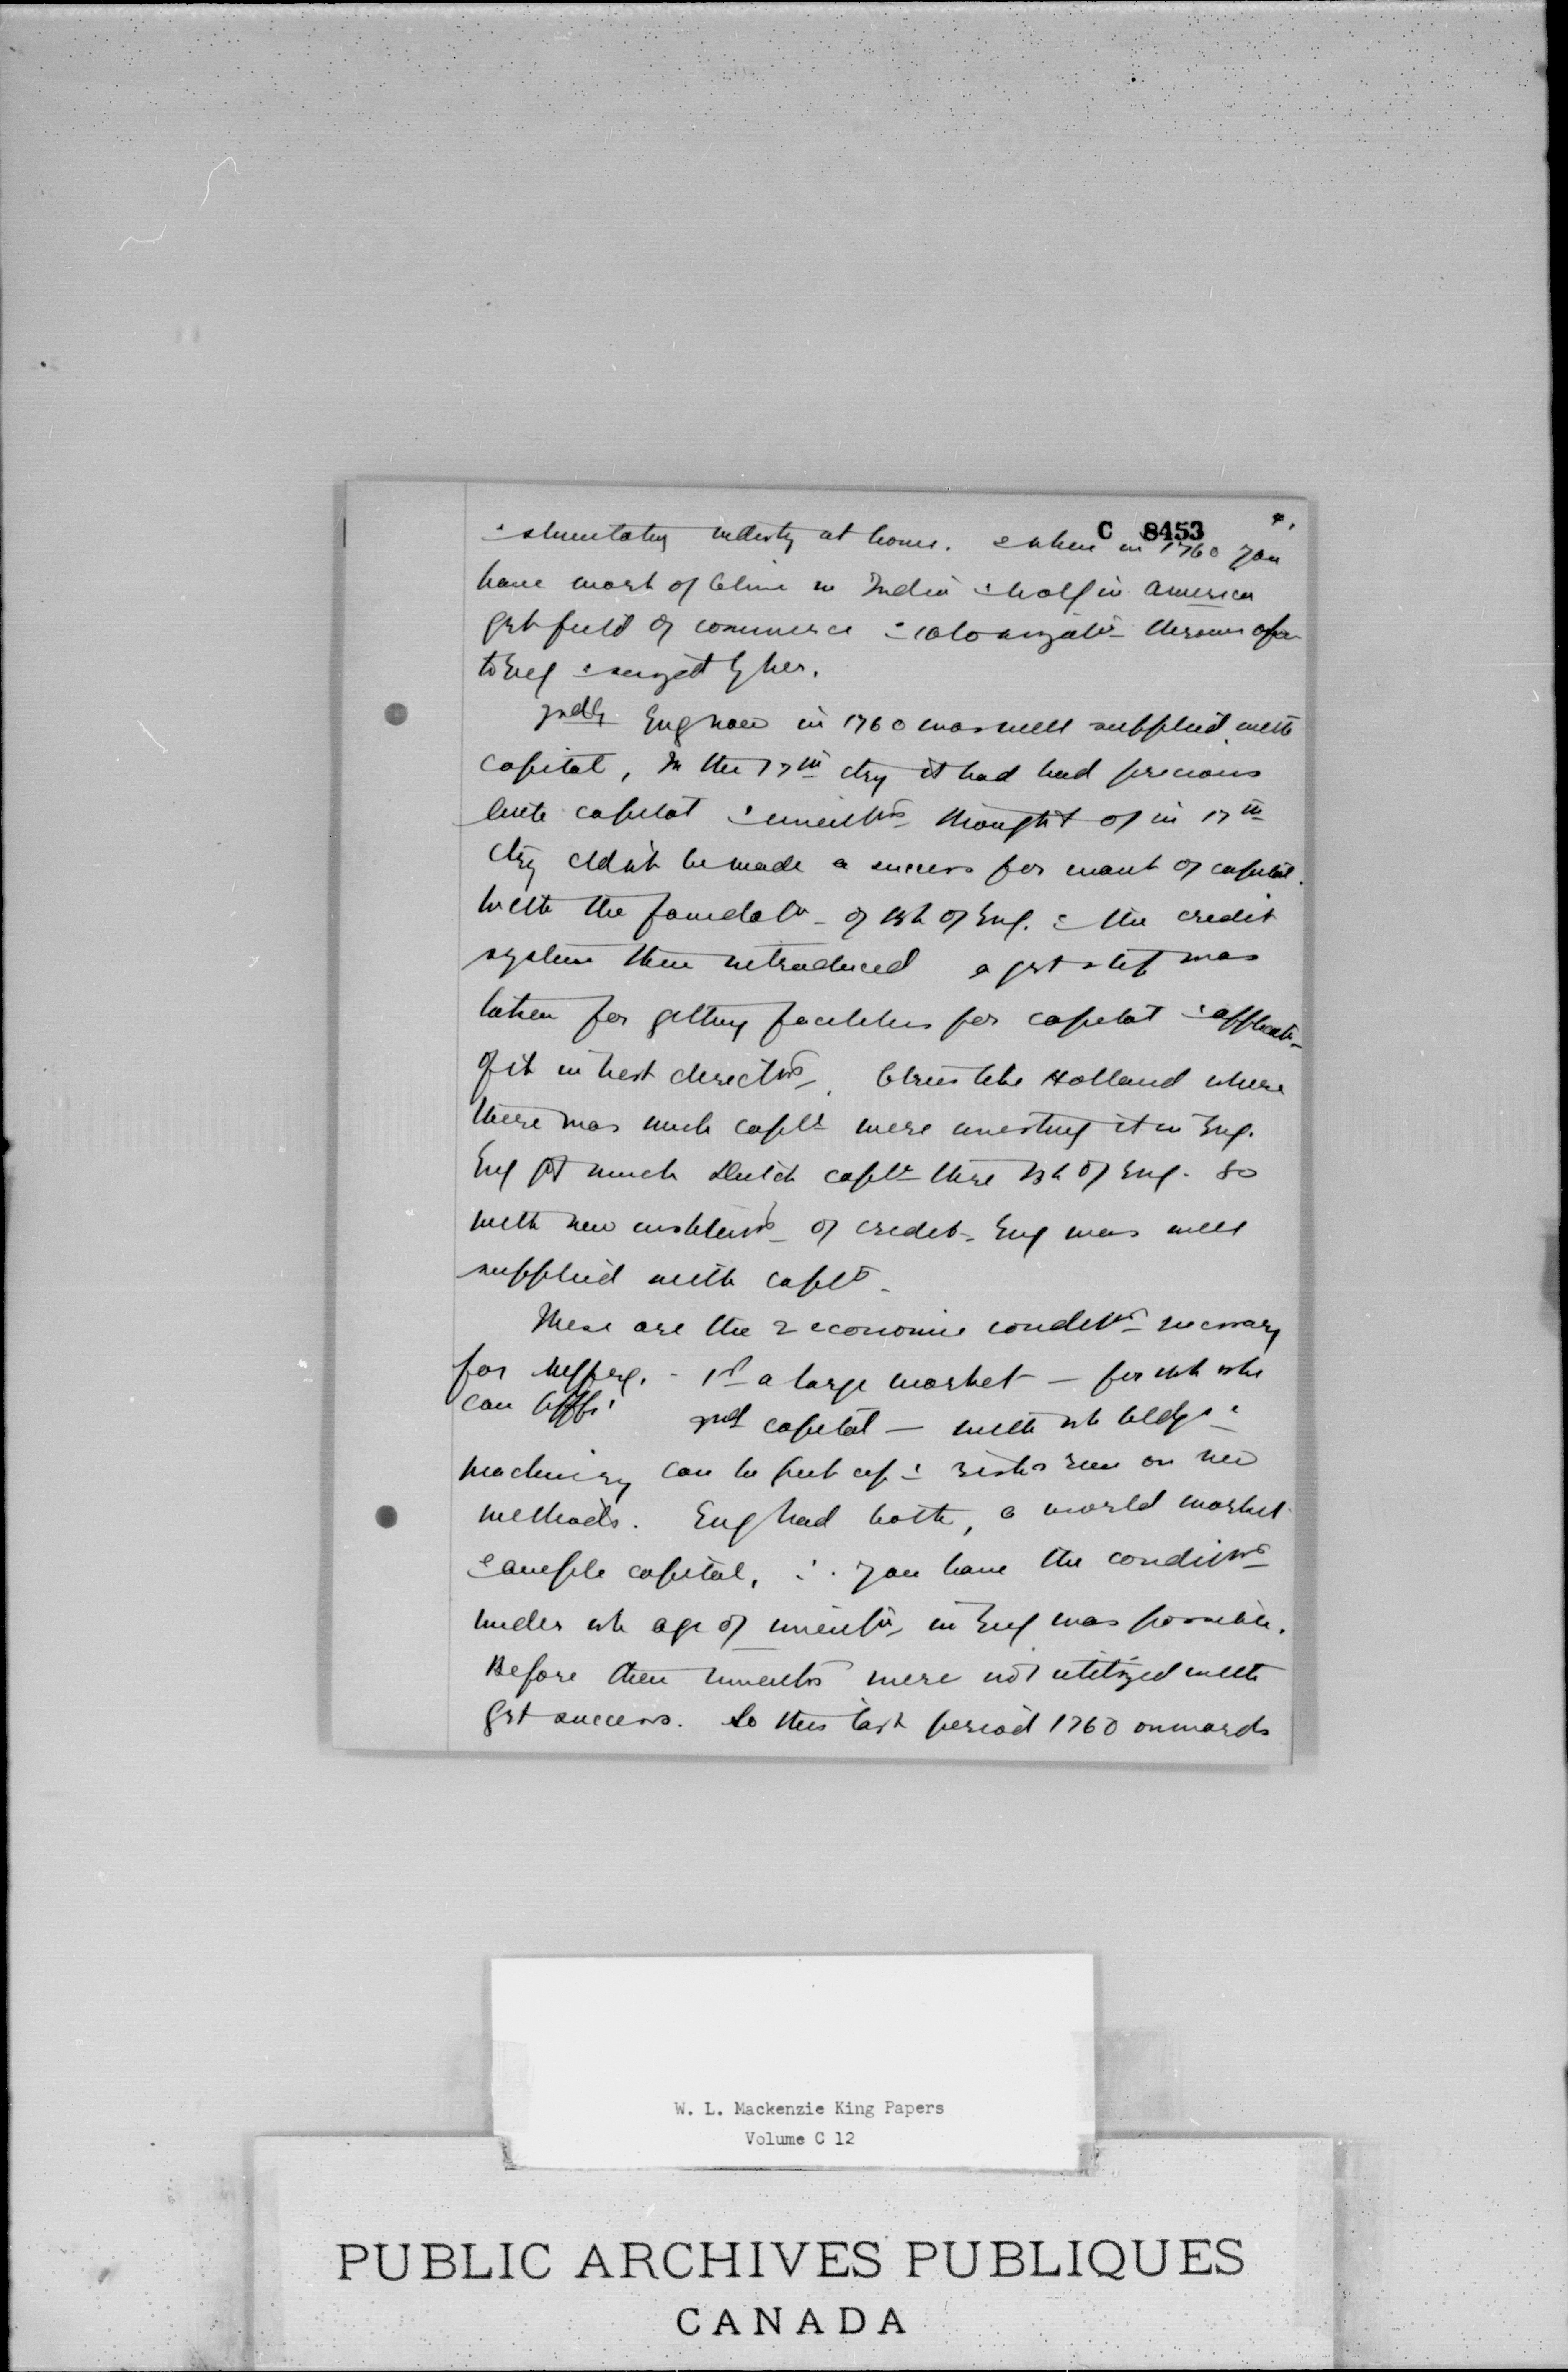 C 8453
4.
& stimulating industry at home. & when in 1760 you
have work of Clive in India & Wolf in America
grt field of commerce & colonizatn thrown open
to Eng & seized by her.
2ndly Eng now in 1760 was well supplied with
capital, In the 17th cty it had had precious
little capital & inventns thought of in 17th
cty cldn't be made a success for want of capital.
With the foundatn of Bk of Eng. & the credit
system then introduced a grt step was
taken for getting facilities for capital & applicatn
of it in best directns. Ctries like Holland where
there was much captl were investing it in Eng.
Eng got much Dutch captl thro Bk of Eng. So
with new institutns of credit Eng was well
supplied with captl.
These are the 2 economic conditns necessary
for - 1st a large market - for wh
can
2nd capital - with wh bldgs &
machinery can be put up & risks run on new
methods. Eng had both, a world market
& ample capital, ∴ you have the conditns
under wh age of inventn in Eng was possible.
Before then inventns were not utilized with
grt success. So this last period 1760 onwards
W. L. Mackenzie King Papers
Volume C 12
PUBLIC ARCHIVES PUBLIQUES
CANADA